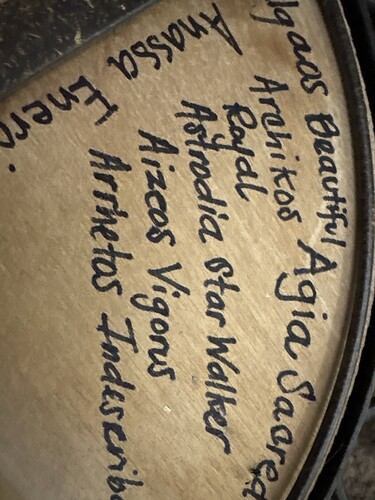 lgaos Beautiful
Agia Sacred
Archikos
Royal
Astrodia Star Walker
Aizeos Vigorus
Arrhetos Indescrib
Anassa